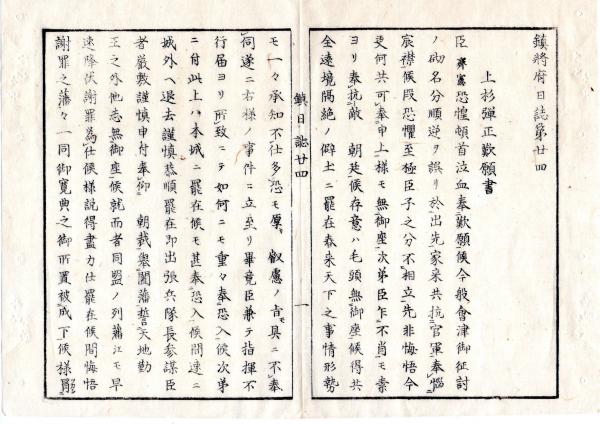 鎮將府日誌第廿四
上杉彈正歎願書
臣齊憲恐惶頓首泣血奉歎願候今般會津御征討
ノ砌名分順逆ヲ誤リ於出先家来共抗官軍奉惱
宸襟候段恐懼至極臣子之分不相立先非悔悟今
更何共可奉申上様モ無御座次第臣乍不肖モ素
ヨリ奉抗敵　朝廷候存意ハ毛頭無御座候得共
全遠境隔絶ノ僻土ニ罷在春来天下之事情形勢
鎮日誌廿四
一
モ一々承知不仕多恐モ厚　叡慮ノ旨モ具ニ不奉
伺遂ニ右様ノ事件ニ立至リ畢竟臣兼テ指揮不
行届ヨリ所致ニテ如何ニモ重々奉恐入候次第
ニ付此上ハ本城ニ罷在候モ甚奉恐入候間速ニ
城外ヘ退去謹慎恭順罷在即出張兵隊長参謀臣
者嚴敷謹慎申付奉仰　朝裁與闔藩誓天地勤
王之外他志無御座候就而者同盟ノ列藩江モ早
速降伏謝罪為仕候様説得盡力仕罷在候間悔悟
謝罪之藩々一同御寛典之御所置被成下候様